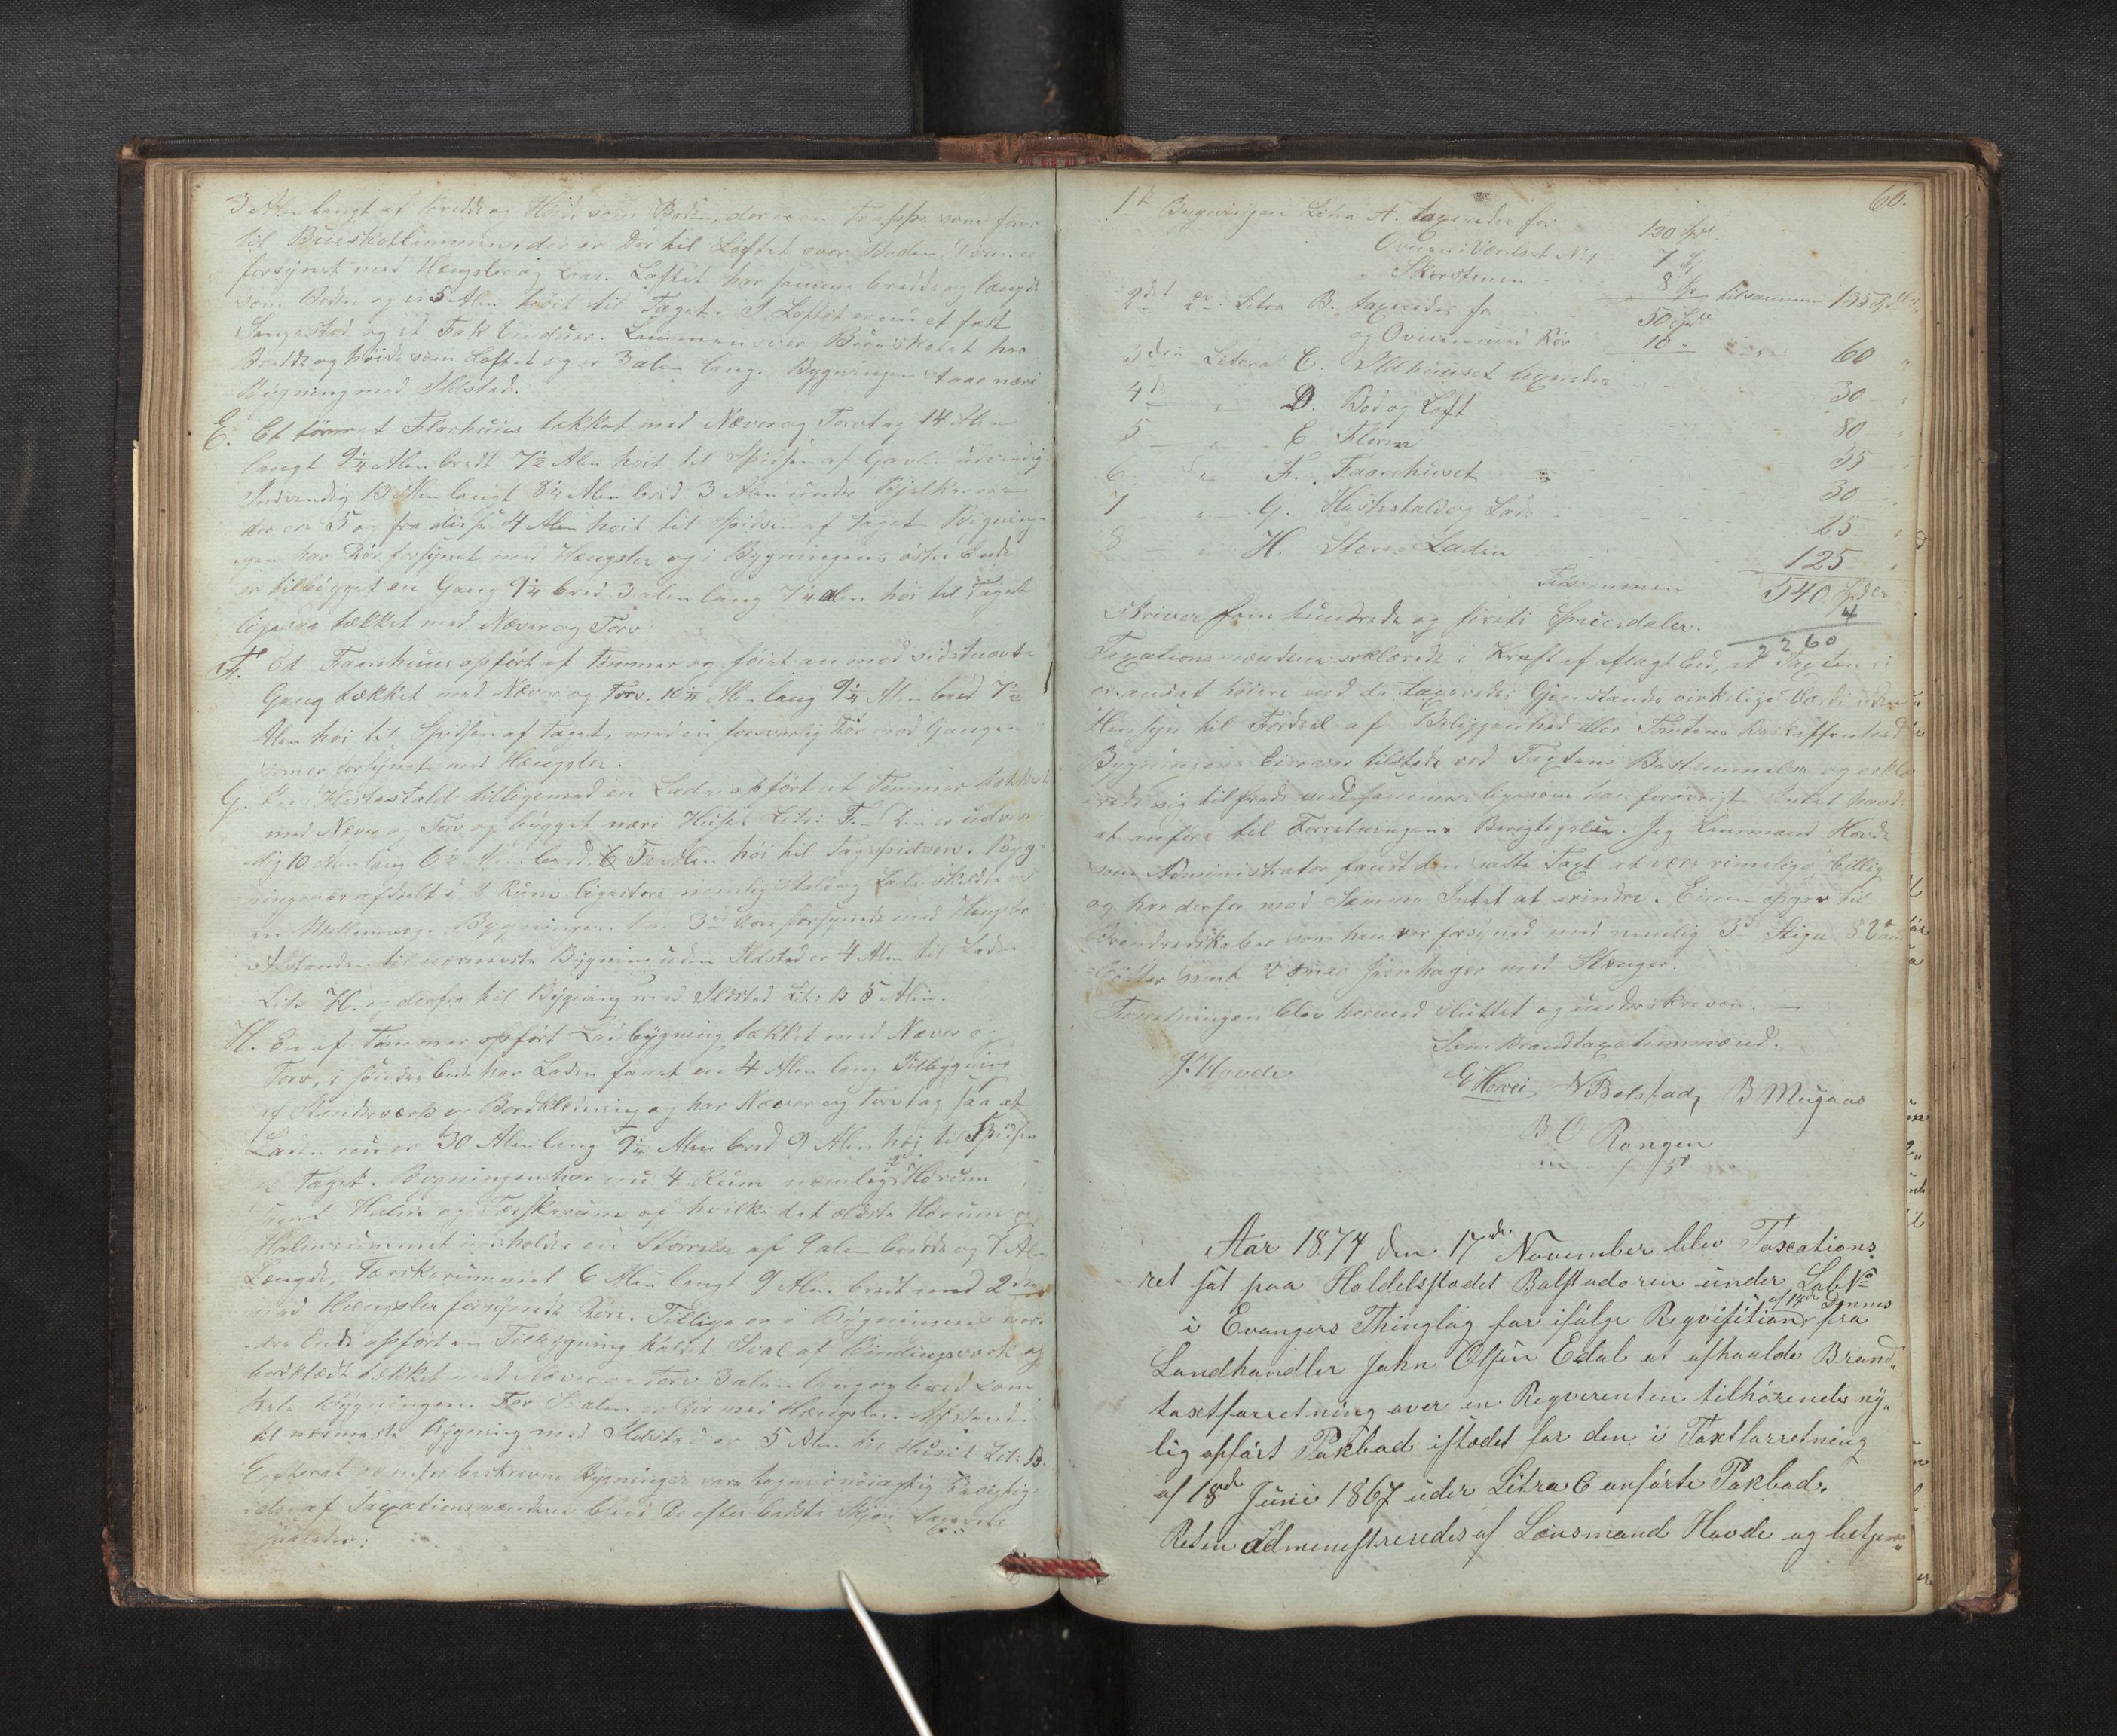 3 Alen langt af Bredde og Høide som Boden, der er en Trappe som fører
til Bueskotlemmen, der er Dør til Loftet over Boden, Døren er
forsynet med Hængsler og Laas. Loftet har samme bredde og længde
som Boden og er 5 Alen høit til Taget. I Loftet er nu et fast
Sengested og et Fak Vinduer. Lemmen over Bueskotet har
Bredde og høide som Loftet og er 3 alen lang. Bygningen staar næst
Bygning med Ildsted.
E. Et tømret Florhuus tækket med Næver og Torvtag 14 Alen
langt 9¼ Alen bredt 7½ Alen høit til Spidsen af Gavlen udvendig.
Indvendig 13 Alen langt 8¼ Alen bred 3 Alen under Bjelkerne
der ere 5 og fra disse 4 Alen høit til Spidsen af Taget. Bygning-
en har Dør forsynet med Hængsler og i Bygningens østre Ende
er tilbygget en Gang 9¼ bred 3 alen lang 7¼ alen høi til Taget
ligesaa tækket med Næver og Torv
F. Et Faarehuus opført af tømmer og føiet an mod sidstnævnte
Gang tækket med Næver og Torv. 10¼ Alen lang 9¼ Alen bred 7½
Alen høi til Spidsen af Taget, med en forsvarlig Dør mod Gangen
som er forsynet med Hængsler.
G. En Hestestald tilligemed en Lade opført af Tømmer tækket
med Næver og Torv og bygget næst Huset Litra F. Den er udven
dig 10 Alen lang 6½ Alen bred 5½ Alen høi til Tagspidsen. Byg-
ningen er afdeelt i 2 Rum ligestore nemlig Stald og Lade skildte ved
en Mellemvæg. Bygningen har 3de Døre forsynede med Hængsler
Afstanden til nærmeste Bygning uden Ildsted er 4 Alen til Laden
Litr H. og derfra til Bygning med Ildsted Litr B 5 Alen.
H. En af Tømmer opført Ladebygning tækket med Næver og
Torv, i søndre Ende har Laden faaet en 4 Alen lang Tilbygning
af Stenderværk og Bordklædning og har Næver og Torvtag, saa at
Laden nu er 30 Alen lang 9¼ Alen bred 9 Alen høi til Spidsen
af Taget. Bygningen har nu 4 Rum nemlig 2de Hørum
samt Halm og Tærskerum af hvilke det ældste Hørum og
Halmrummet indholder en Størrelse af 9 alen bredde og 7 Alen
Længde, Tærskerummet 6 Alen langt 9 Alen bredt med 2de
med Hængsler forsynede Døre. Tillige er i Bygningens nor-
dre Ende opført en Tilbygning kaldet Sval af Bindingsværk og
bordklædt tækket med Næver og Torv 3 alen lang og bred som
hele Bygningen. For Svalen er Dør med Hængsler. Afstand
til nærmeste Bygning med Ildsted er 5 Alen til Huset Litr. B.
Efterat ovenfor beskrevne Bygninger vare tagne i nøiagtig Besigtig-
else af Taxationsmændene bleve De efter bedste Skjøn taxerede
saaledes:
60.
1te Bygningen Litra A. taxeredes for 130 Spd.
Ovnen i Værelset No 1 7 Sp
Skorstenen 8 Sp tilsammen 145 Spdl
2det do. Litra B. taxeredes for 50 Spdl
og Ovnen med Rør 10 " 60 "
3die Litera C. Ildhuuset taxeredes 30 "
4de " D. Bod og Loft 80 "
5 " E Floren 35 "
6 " F. Faarehuset 30
7 " G. Hestestald og Lade 25 "
8 " H. Store Laden 125 "
Tilsammen 540 Spdlr
4
2260
skriver fem hundrede og fireti Speciedaler.
Taxationsmændene erklærede i Kraft af aflagt Eed, at Taxten ei
er ansat høiere end de taxeredes Gjenstands virkelige Værdi uden
Hensyn til Fordeel af Beliggenhed eller Tomtens Beskaffenhed
Bygningens Eier var tilstede ved Taxtens Bestemmelse og erklæ
rede sig tilfreds med samme, ligesom han forøvrigt Intet havde
at anføre til Forretningens Berigtigelse. Jeg Lensmand Hovde
som Administrator fandt den satte Taxt at være rimelig og billig
og har derfor mod Samme Intet at erindre. Eieren opgav til
Brandredskaber som han var forsynet med nemlig 3de Stiger 8 Vand
bøtter samt 2 smaa Jernhager med Stænger.
Forretningen blev hermed sluttet og underskreven.
Som Brandtaxationsmænd.
J. Hovde E Horvei N Bolstad, B Mugaas
B O Rongen
Aar 1874 den 17de November blev Taxations
ret sat paa Haldelstedet Bolstadøren under Løb No
i Evangers Thinglag for ifølge Reqvisition af 14de Dennes fra
Landhandler John Olsen Edal at afholde Brand„
taxtforretning over en Reqvirenten tilhørende ny„
lig opført Pakbod istedet for den i Taxtforretning
af 18de Juni 1867 uder Litra C anførte Pakbod.
Reten Admenestreredes af Lensmand Hovde og betjen„